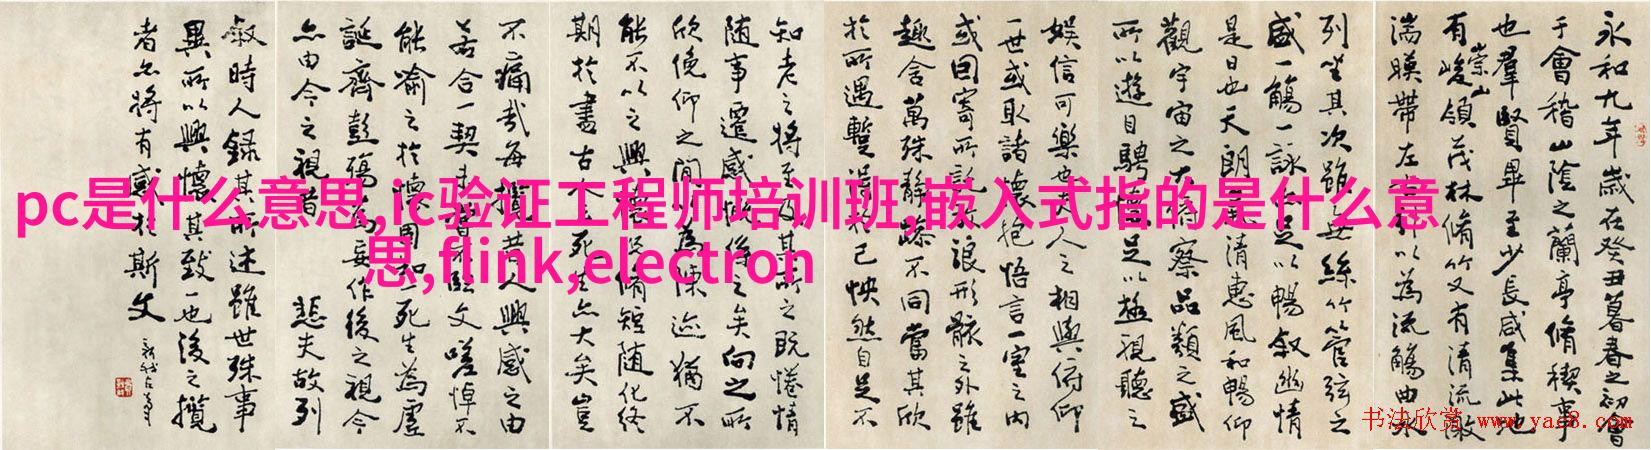 永和九年歲在癸丑暮春之初會
于會稽山陰之蘭亭脩稧事
也羣賢畢至少長咸集此地
有崇山峻領茂林脩竹又有清流激
湍暎帶左右引以為流觴曲水
列坐其次雖無絲竹管弦之
盛一觴一詠亦足以暢敘幽情
是日也天朗氣清惠風和暢仰
觀宇宙之大俯察品類之盛
所以遊目騁懷足以極視聽之
娛信可樂也夫人之相與俯仰
一世或取諸懷抱悟言一室之內
或因寄所託放浪形骸之外雖
趣舍萬殊靜躁不同當其欣
於所遇蹔得於己怏然自足不
知老之將至及其所之既惓情
隨事遷感慨係之矣向之所
欣俛仰之間以為陳迹猶不
能不以之興懷況脩短隨化終
期於盡古人云死生亦大矣豈
不痛哉每攬昔人興感之由
若合一契未嘗不臨文嗟悼不
能喻之於懷固知一死生為虛
誕齊彭殤為妄作後之視今
亦由今之視昔 悲夫故列
敘時人錄其所述雖世殊事
異所以興懷其致一也後之攬
者亦將有感於斯文
pc是什么意思,ic验证工程师培训班,嵌入式指的是什么意
思,flink,electron
书法欣赏 www.yac8.com